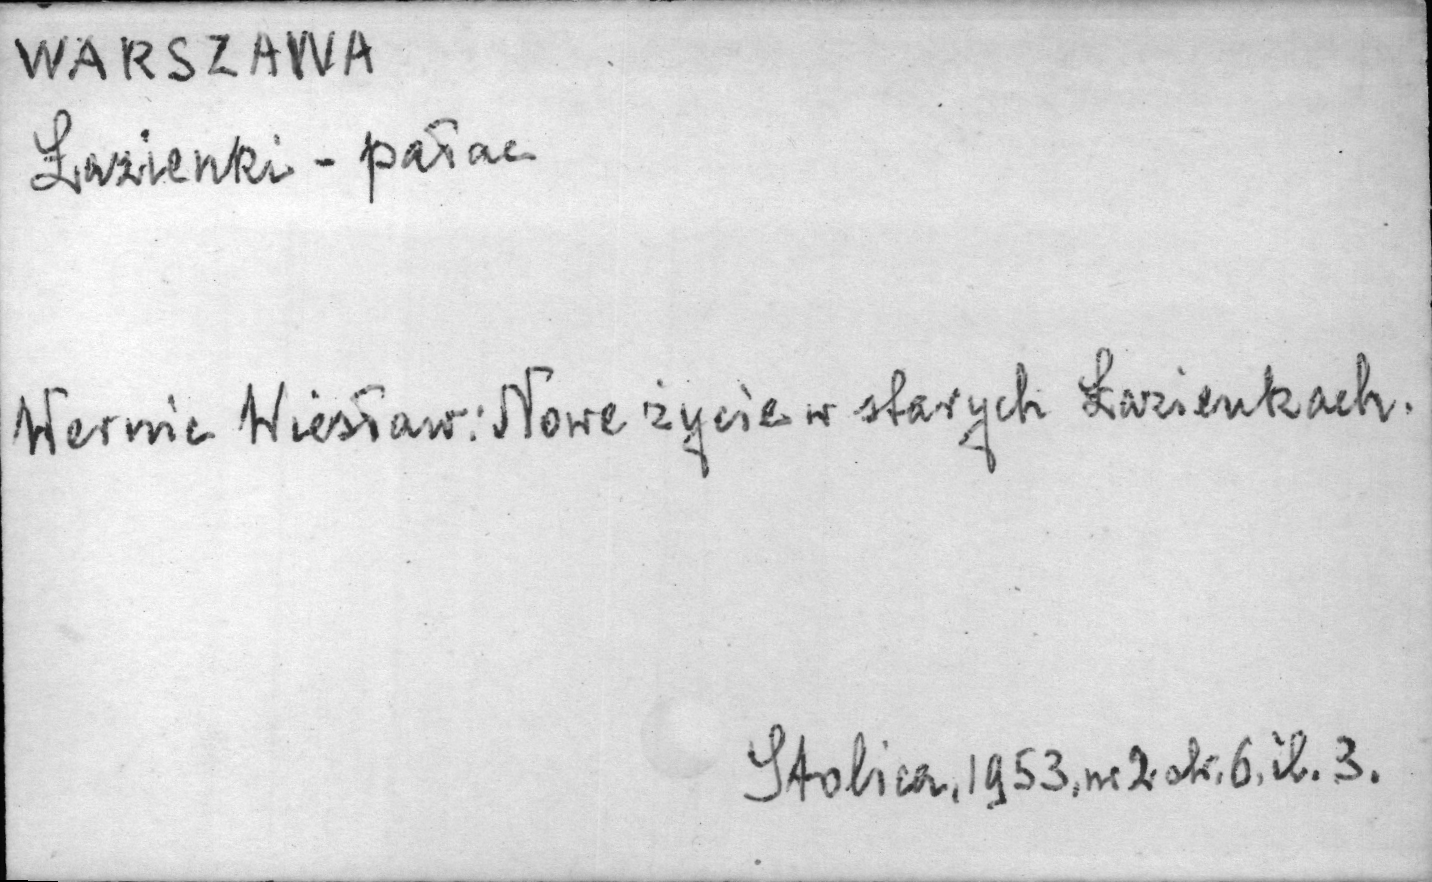 WARSZAWA
Łazienki - pałac
Wernic Wiesław: Nowe życie w starych Łazienkach.
Stolica, 1953, nr 2 str. 6, il. 3.